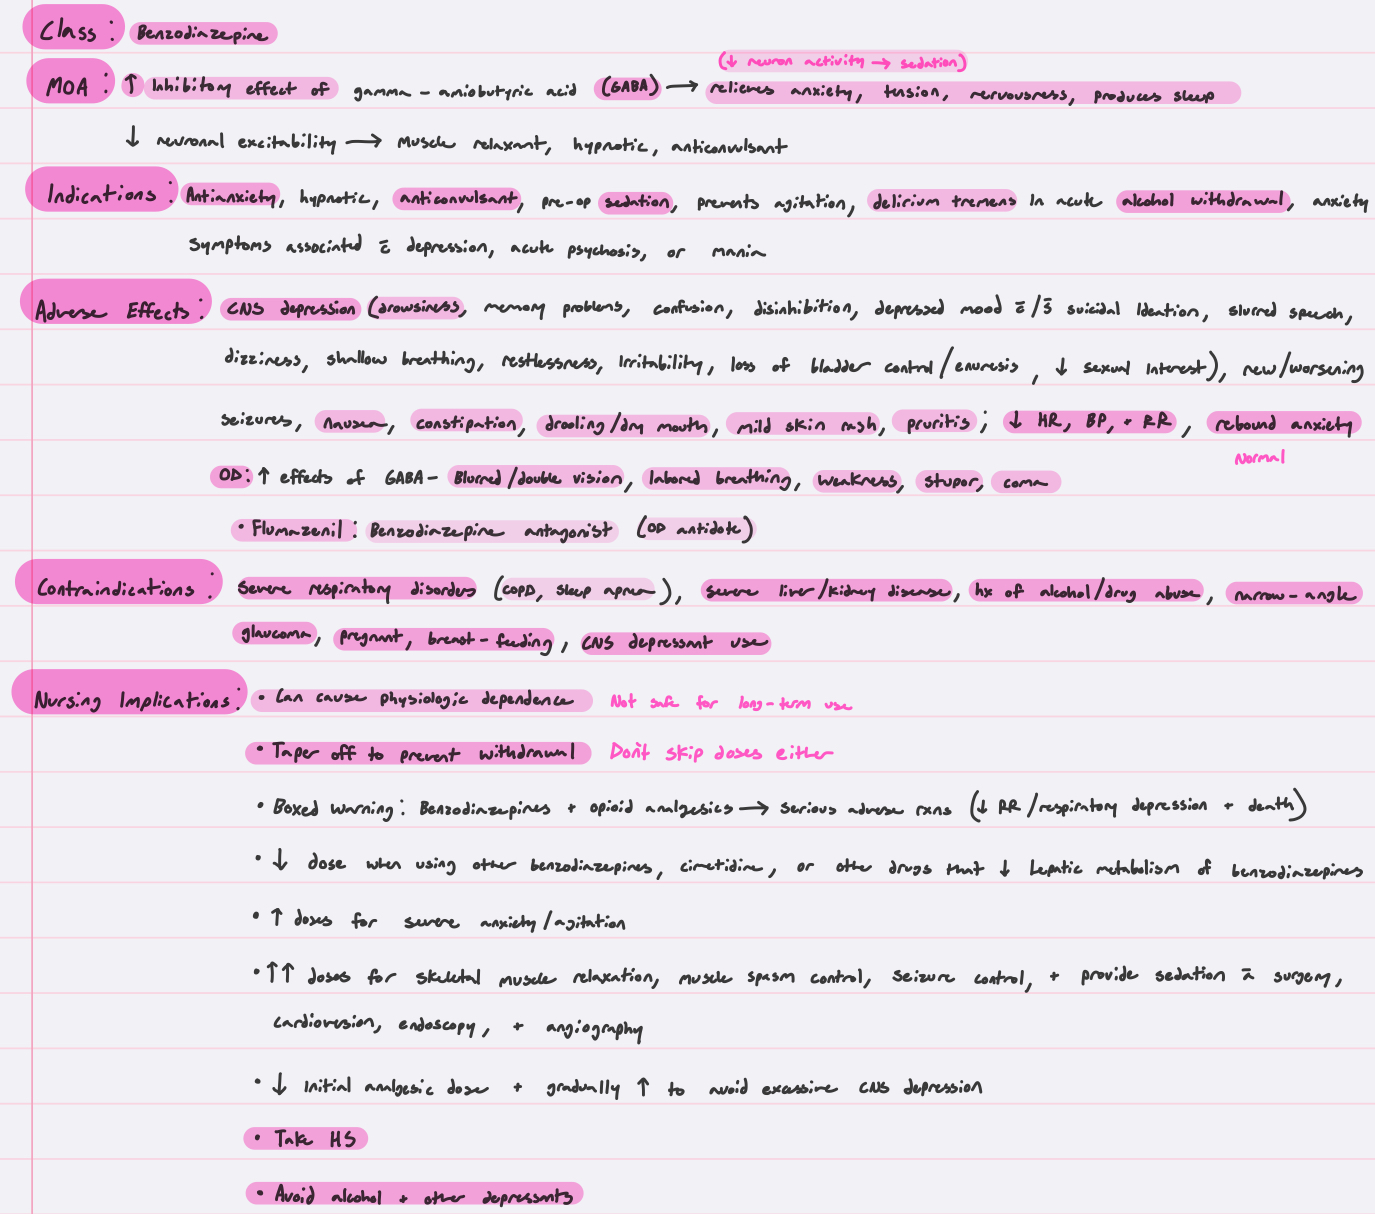 Class: Benzodiazepine
(↓ neuron activity → sedation)
MOA: ↑ Inhibitory effect of gamma-amiobutyric acid (GABA) → relieves anxiety, tension, nervousness, produces sleep
↓ neuronal excitability → Muscle relaxant, hypnotic, anticonvulsant
Indications: Antianxiety, hypnotic, anticonvulsant, pre-op sedation, prevents agitation, delirium tremens In acute alcohol withdrawal, anxiety
Symptoms associated c̄ depression, acute psychosis, or mania
Adverse Effects: CNS depression (drowsiness, memory problems, confusion, disinhibition, depressed mood c̄/s̄ suicidal Ideation, slurred speech,
dizziness, shallow breathing, restlessness, Irritability, loss of bladder control/enuresis, ↓ sexual Interest), new/worsening
Seizures, nausea, constipation, drooling/dry mouth, mild skin rash, pruritis; ↓ HR, BP, + RR, rebound anxiety
Normal
OD: ↑ effects of GABA- Blurred/double vision, labored breathing, weakness, stupor, coma
• Flumazenil: Benzodiazepine antagonist (OD antidote)
Contraindications: Severe respiratory disorders (COPD, sleep apnea), severe liver/kidney disease, hx of alcohol/drug abuse, narrow-angle
glaucoma, pregnant, breast-feeding, CNS depressant use
Nursing Implications: • Can cause physiologic dependence Not safe for long-term use
• Taper off to prevent withdrawal Don't skip doses either
• Boxed Warning: Benzodiazepines + opioid analgesics → serious adverse rxns (↓ RR/respiratory depression + death)
• ↓ dose when using other benzodiazepines, cimetidine, or other drugs that ↓ hepatic metabolism of benzodiazepines
• ↑ doses for severe anxiety/agitation
• ↑↑ doses for skeletal muscle relaxation, muscle spasm control, seizure control, + provide sedation ā surgery,
cardioversion, endoscopy, + angiography
• ↓ Initial analgesic dose + gradually ↑ to avoid excessive CNS depression
• Take HS
• Avoid alcohol + other depressants